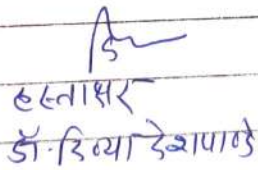 हस्ताक्षर
डॉ. दिव्या देशपाण्डे